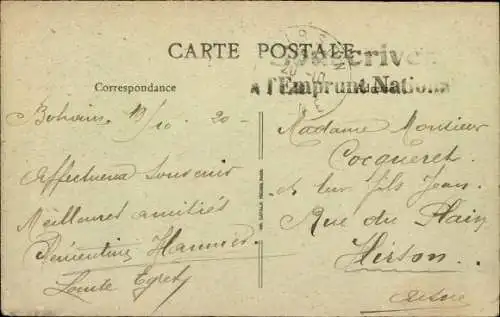 CARTE POSTALE
Souscrivez
à l'Emprunt National
Correspondance
Bohain 13/10 - 20 -
Affectueux Souvenir
Meilleures amitiés
Clémentine
Madame Monsieur
Cocqueret
et leur fils Jean.
Rue du Plain
Hirson.
Aisne